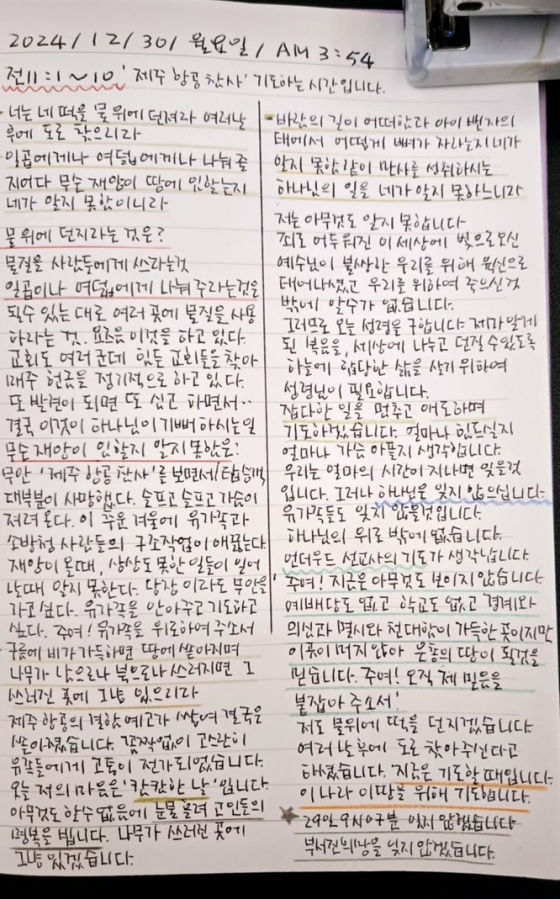 2024/12/30/ 월요일/ AM 3:54
전11:1~10 '제주항공 참사' 기도하는 시간입니다.
너는 네 떡을 물 위에 던져라 여러날
후에 도로 찾으리라
일곱에게나 여덟에게나 나눠 줄
지어다 무슨 재앙이 땅에 임할는지
네가 알지 못함이니라
물 위에 던지라는 것은?
물질을 사람들에게 쓰라는것
일곱이나 여덟에게 나눠 주라는것은
될수 있는 대로 여러 곳에 물질을 사용
하라는 것. 요즈음 이것을 하고 있다.
교회도 여러 군데 힘든 교회들을 찾아
매주 헌금을 정기적으로 하고 있다.
또 발견이 되면 또 심고 하면서..
결국 이것이 하나님이 기뻐하시는일
무슨 재앙이 임할지 알지 못함은?
무안 '제주 항공 참사'를 보면서/탑승객
대부분이 사망했다. 슬프고 슬프고 가슴이
저려 온다. 이 추운 겨울에 유가족과
소방청 사람들의 구조작업이 애끓는다
재앙이 올때, 상상도 못한 일들이 일어
날때 알지 못한다. 당장 이라도 무안을
가고 싶다. 유가족을 안아주고 기도하고
싶다. 주여! 유가족을 위로하여 주소서
구름에 비가 가득하면 땅에 쏟아지며
나무가 남으로나 북으로나 쓰러지면 그
쓰러진 곳에 그냥 있으리라
제주 항공의 결함 예고가 쌓여 결국은
쏟아졌습니다. 꼼짝없이 고스란히
유족들에게 고통이 전가되었습니다.
오늘 저의 마음은 '캄캄한 날'입니다.
아무것도 할수 없음에 눈물 흘려 고인들의
명복을 빕니다. 나무가 쓰러진 곳에
그냥 있겠습니다.
바람의 길이 어떠함과 아이 밴자의
태에서 어떻게 뼈가 자라는지 네가
알지 못함 같이 만사를 성취하시는
하나님의 일을 네가 알지 못하느니라
저는 아무것도 알지 못합니다
죄로 어두워진 이 세상에 빛으로 오신
예수님이 불쌍한 우리를 위해 육신으로
태어나셨고 우리를 위하여 죽으신것
밖에 알수가 없습니다.
그러므로 오늘 성령을 구합니다. 제가 알게
된 복음을, 세상에 나누고 던질 수 있도록
하늘에 합당한 삶을 살기 위하여
성령님이 필요합니다.
잡다한 일을 멈추고 애도하며
기도하겠습니다. 얼마나 힘드실지
얼마나 가슴 아플지 생각합니다.
우리는 얼마의 시간이 지나면 잊을것
입니다. 그러나 하나님은 잊지 않으십니다.
유가족들도 잊지 않을것입니다.
하나님의 위로 밖에 없습니다.
언더우드 선교사의 기도가 생각납니다
'주여! 지금은 아무것도 보이지 않습니다
예배당도 없고 학교도 없고 경계와
의심과 멸시와 천대함이 가득한 곳이지만
이곳이 머지않아 은총의 땅이 될것을
믿습니다. 주여! 오직 제 믿음을
붙잡아 주소서'
저도 물위에 떡을 던지겠습니다.
여러 날 후에 도로 찾아 주신다고
하셨습니다. 지금은 기도할 때입니다.
이 나라 이 땅을 위해 기도합니다.
29일 9시 07분 잊지 않겠습니다